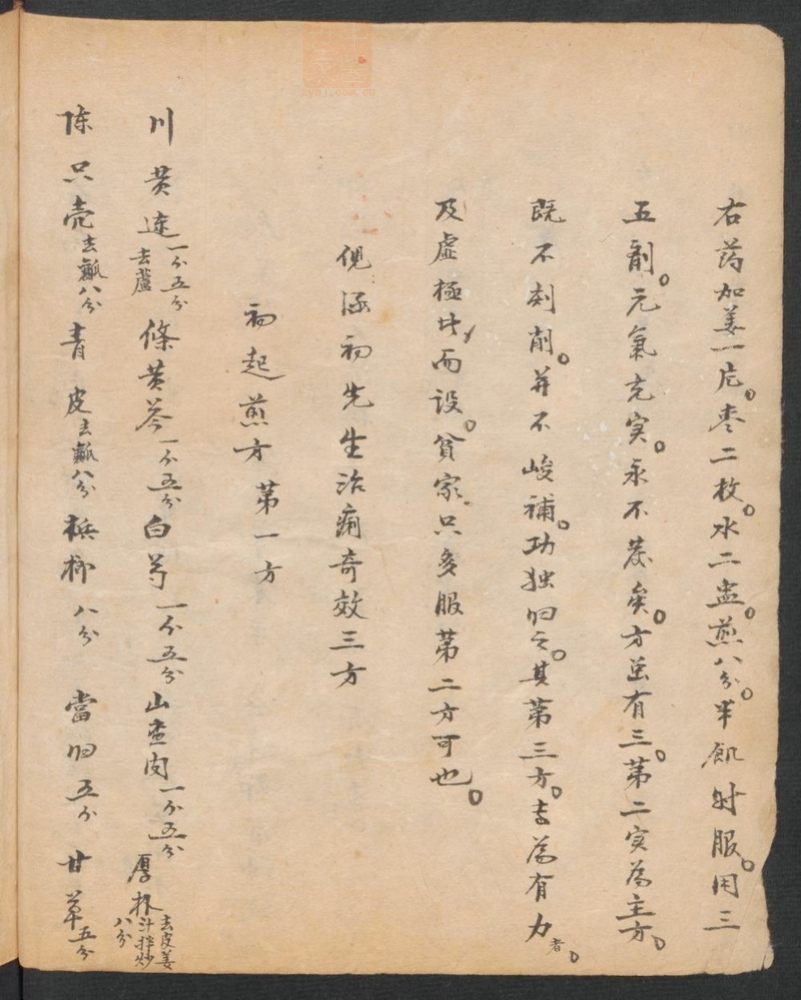 右药加姜一片。枣二枚。水二盅。煎八分。半飢时服。用三
五劑。元氣充実。永不發矣。方虽有三。第二実為主方。
既不刻削。并不峻補。功独归之。其第三方。专為有力者。
及虚極此而設。貧家只多服第二方可也。
倪涵初先生治痢奇效三方
初起煎方第一方
川黄连一个五分去蘆 條黄芩一个五分 白芍一个五分 山查肉一个五分 厚朴去皮姜汁拌炒八分
陈只壳去瓤八分 青皮去瓤八分 槟榔八分 當归五分 甘草五分